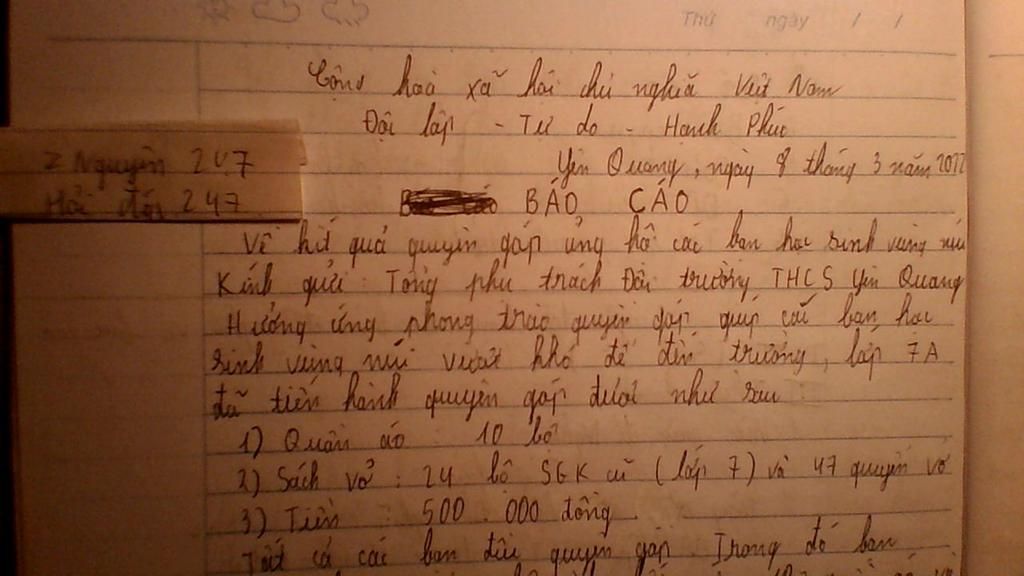 Thứ ngày / /
Cộng hoà xã hội chủ nghĩa Việt Nam
Độc lập - Tự do - Hạnh Phúc
Z Nguyên 247
Hỏi đáp 247
Yên Quang, ngày 8 tháng 3 năm
BÁO CÁO
Về kết quả quyên góp ủng hộ các bạn học sinh vùng núi
Kính gửi : Tổng phụ trách Đội trường THCS Yên Quang
Hưởng ứng phong trào quyên góp giúp các bạn học
sinh vùng núi vượt khó để đến trường, lớp 7A
đã tiến hành quyên góp được như sau
1) Quần áo : 10 bộ
2) Sách vở : 24 bộ SGK cũ (lớp 7) và 47 quyển vở
3) Tiền : 500.000 đồng
Tất cả các bạn đều quyên góp. Trong đó bạn